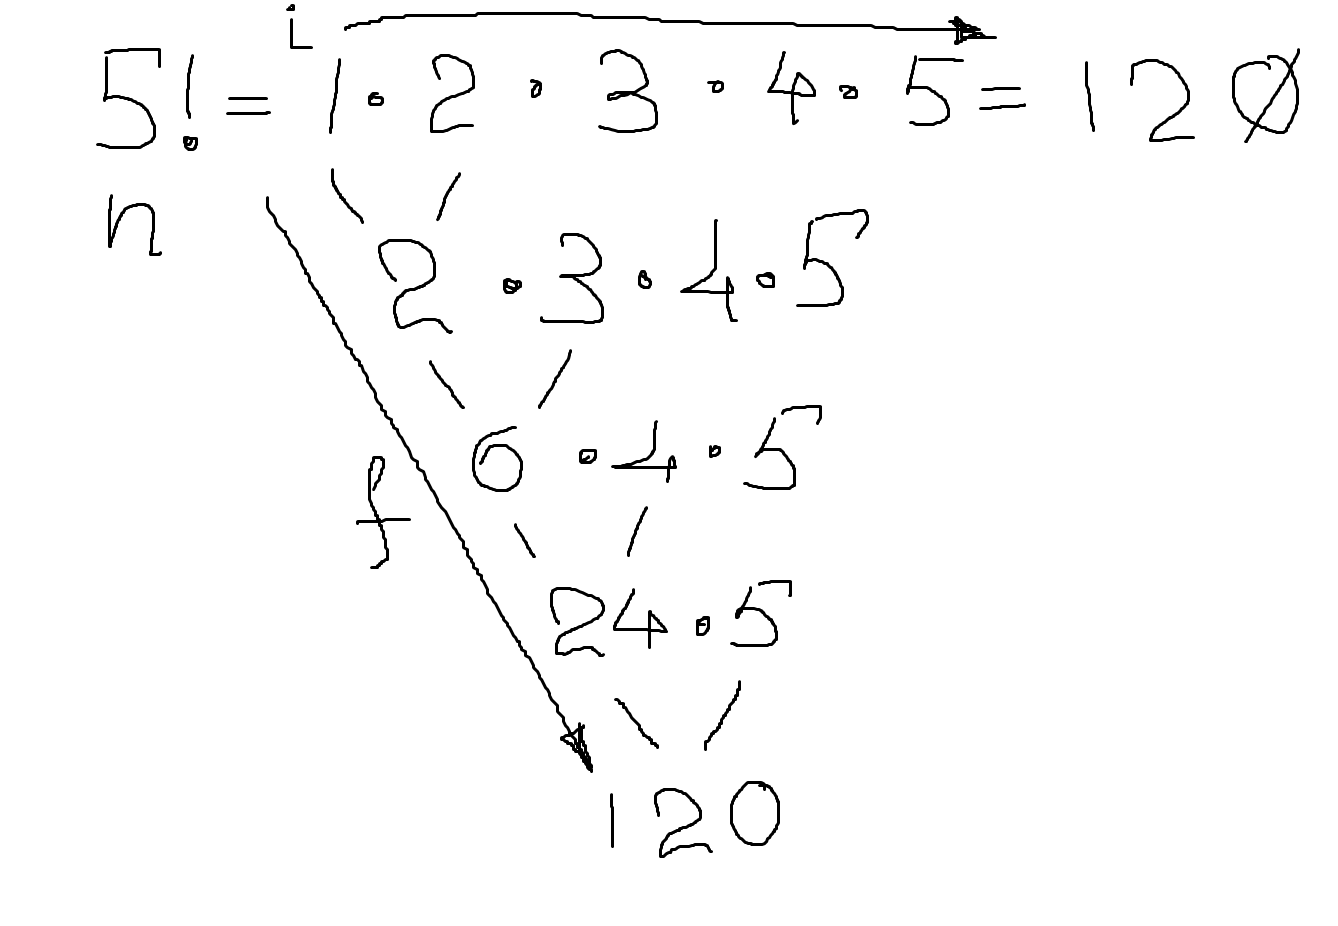 i
5! = 1 · 2 · 3 · 4 · 5 = 120
n
2 · 3 · 4 · 5
6 · 4 · 5
f
24 · 5
120